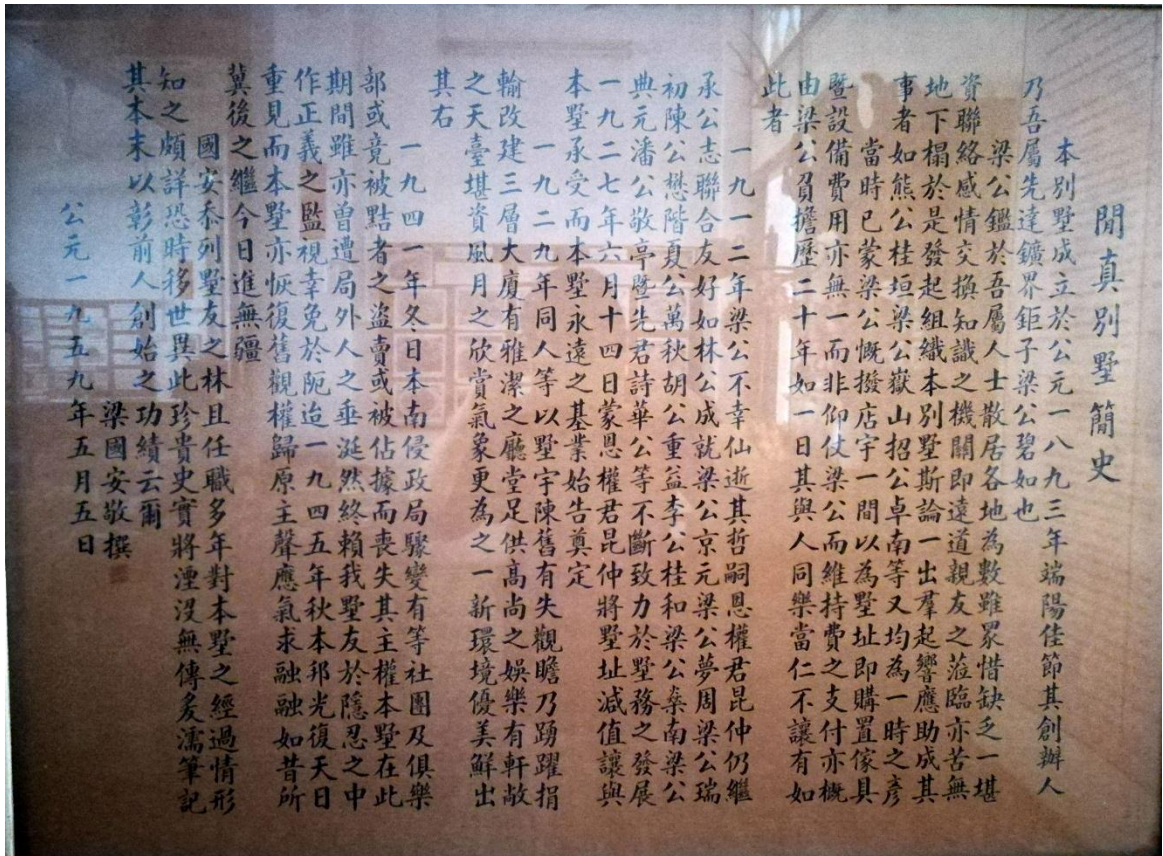 閒真別墅簡史
本別墅成立於公元一八九三年端陽佳節其創辦人
乃吾屬先達鑛界鉅子梁公碧如也
梁公鑑於吾屬人士散居各地為數雖眾惜缺乏一堪
資聯絡感情交換知識之機關即遠道親友之蒞臨亦苦無
地下榻於是發起組織本別墅斯論一出羣起響應助成其
事者如熊公桂垣梁公嶽山招公卓南等又均為一時之彥
當時已蒙梁公慨撥店宇一間以為墅址即購置傢具
暨設備費用亦無一而非仰仗梁公而維持費之支付亦概
由梁公負擔歷二十年如一日其與人同樂當仁不讓有如
此者
一九一二年梁公不幸仙逝其哲嗣恩權君昆仲仍繼
承公志聯合友好如林公成就梁公京元梁公夢周梁公瑞
初陳公懋階夏公萬秋胡公重益李公桂和梁公燊南梁公
典元潘公敬亭暨先君詩華公等不斷致力於墅務之發展
一九二七年六月十四日蒙恩權君昆仲將墅址減值讓與
本墅承受而本墅永遠之基業始告奠定
一九二九年同人等以墅宇陳舊有失觀瞻乃踴躍捐
輸改建三層大廈有雅潔之廳堂足供高尚之娛樂有軒敞
之天臺堪資風月之欣賞氣象更為之一新環境優美鮮出
其右
一九四一年冬日本南侵政局驟變有等社團及俱樂
部或竟被點者之盜賣或被佔據而喪失其主權本墅在此
期間雖亦曾遭局外人之垂涎然終賴我墅友於隱忍之中
作正義之監視幸免於阨迨一九四五年秋本邦光復天日
重見而本墅亦恢復舊觀權歸原主聲應氣求融融如昔所
冀後之繼今日進無疆
國安忝列墅友之林且任職多年對本墅之經過情形
知之頗詳恐時移世異此珍貴史實將湮沒無傳爰濡筆記
其本末以彰前人創始之功績云爾
梁國安敬撰
公元一九五九年五月五日